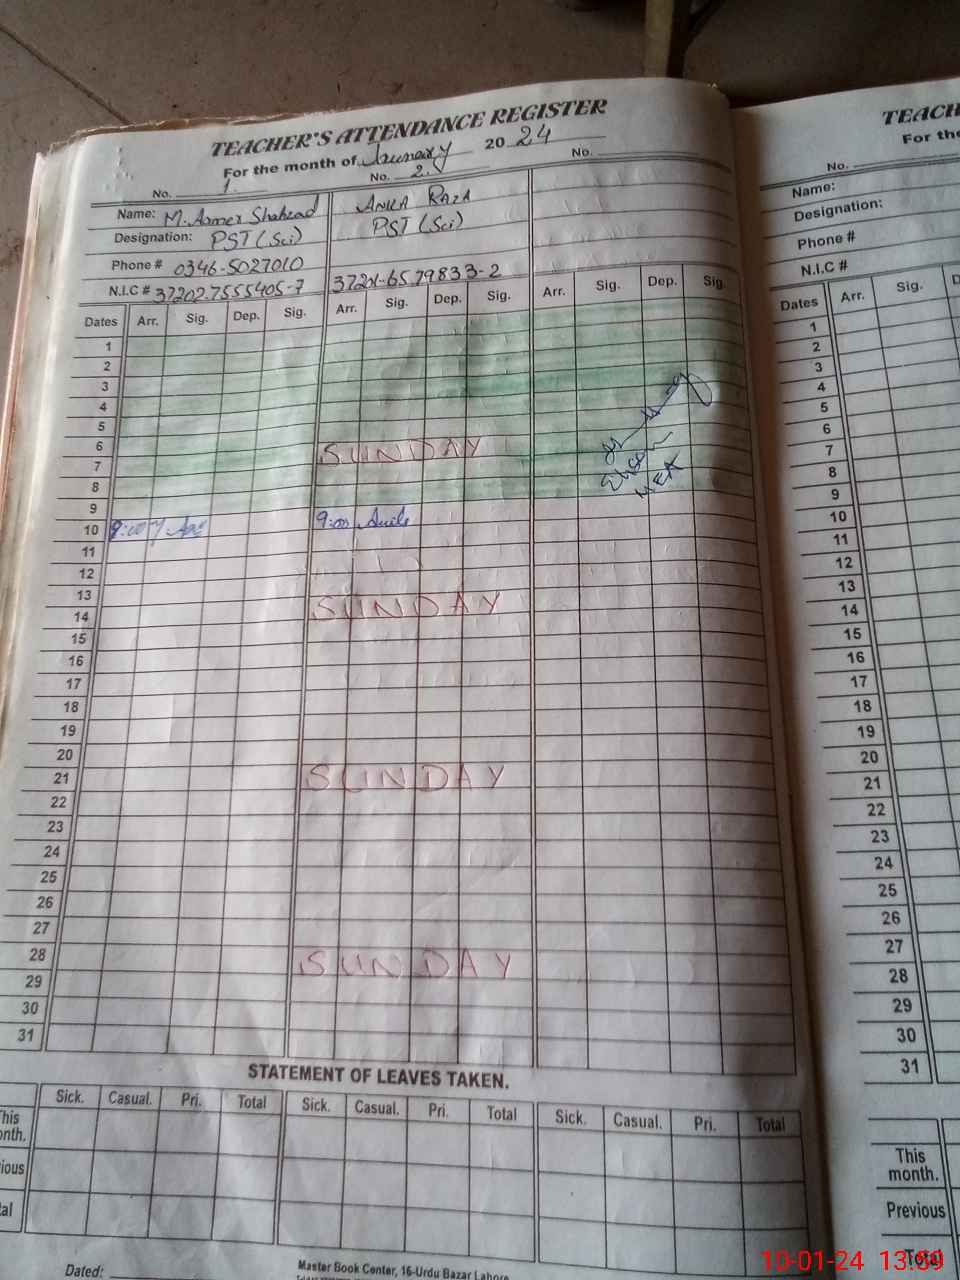 TEACHER'S ATTENDANCE REGISTER
For the month of January 2024
No. 1 No. 2. No.
Name: M. Aamer Shahzad ANILA RAZA
Designation: PST (Sci) PST (Sci)
Phone # 0346-5027010
N.I.C # 37202-7555405-7
Dates Arr. Sig. Dep. Sig. Arr. Sig. Dep. Sig. Arr. Sig. Dep. Sig.
1
2
3
4
5
6
7 SUNDAY
8
9
MEA
10 9:00 9:00
11
12
13
14 SUNDAY
15
16
17
18
19
20
21 SUNDAY
22
23
24
25
26
27
28 SUNDAY
29
30
31
STATEMENT OF LEAVES TAKEN.
Sick. Casual. Pri. Total Sick. Casual. Pri. Total Sick. Casual. Pri. Total
This
onth.
ious
tal
Dated:
Master Book Center, 16-Urdu Bazar Lahore
TEACH
For the
No.
Name:
Designation:
Phone #
N.I.C #
Dates Arr. Sig. D
1
2
3
4
5
6
7
8
9
10
11
12
13
14
15
16
17
18
19
20
21
22
23
24
25
26
27
28
29
30
31
This
month.
Previous
Total
10-01-24 13:59